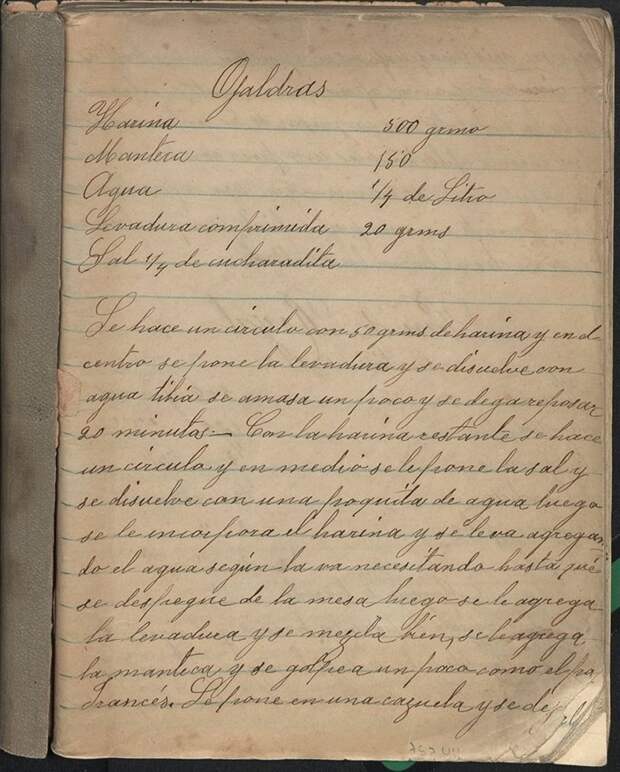 Ojaldras
Harina 500 grms
Manteca 150
Agua 1/4 de Litro
Levadura comprimida 20 grms
Sal 1/4 de cucharadita
Se hace un circulo con 50 grms de harina y en el
centro se pone la levadura y se disuelve con
agua tibia se amasa un poco y se dega reposar
20 minutos.— Con la harina restante se hace
un circulo y en medio se le pone la sal y
se disuelve con una poquita de agua luego
se le incorpora el harina y se le va agregan-
do el agua según la va necesitando hasta que
se despegue de la mesa luego se le agrega
la levadura y se mezcla bien, se le agrega
la manteca y se golpea un poco como el pa
francés. Se pone en una cazuela y se de